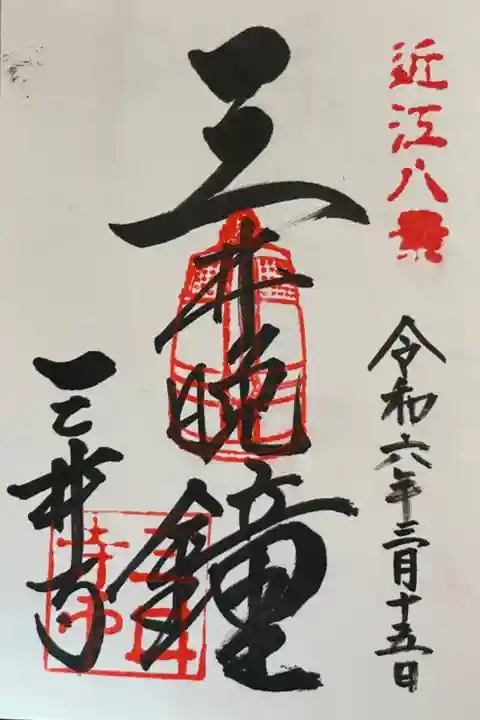 近江八景
令和六年三月十五日
三井晩鐘
三井寺
三井
寺印